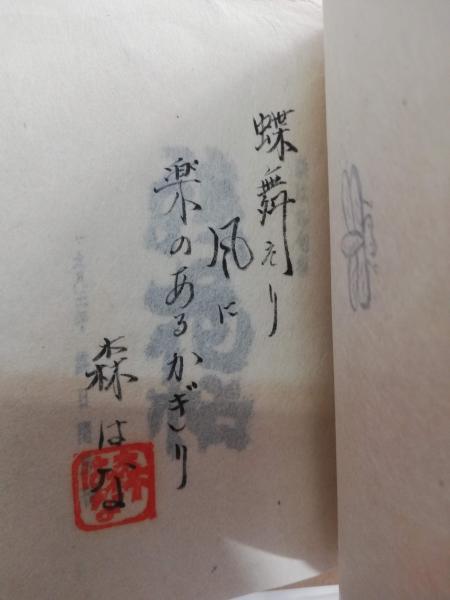 蝶舞えり
風に
楽のあるかぎり
森はな